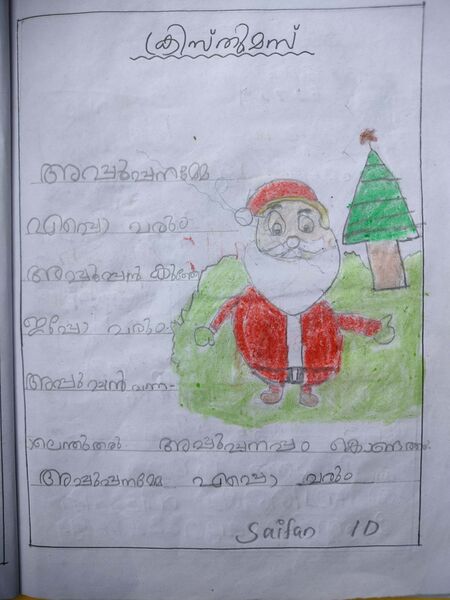 ക്രിസ്തുമസ്
അപ്പൂപ്പനമ്മേ
എപ്പൊ വരും
അപ്പൂപ്പൻ
ഇപ്പോ വരും
അപ്പൂപ്പൻ വന്നാ
അപ്പൂപ്പനപ്പം
അപ്പൂപ്പനമ്മേ എപ്പൊ വരും
Saifan 1D